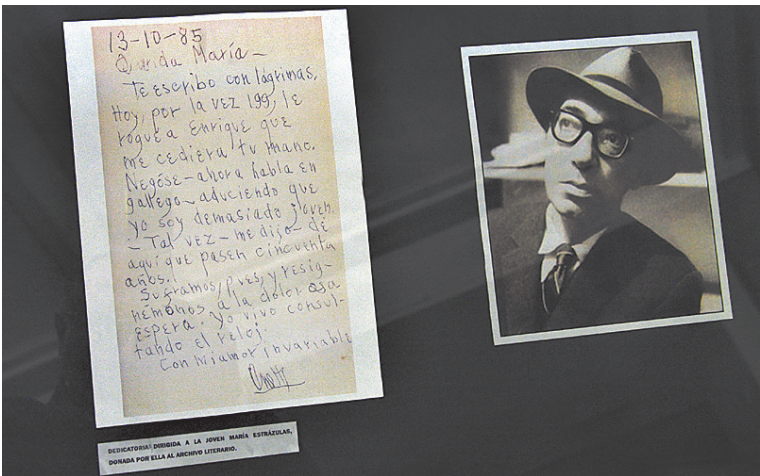 13-10-85
Querida María—
Te escribo con lágrimas.
Hoy, por la vez 199, le
rogué a Enrique que
me cediera tu mano.
Negóse—ahora habla en
gallego—aduciendo que
yo soy demasiado joven.
— Tal vez—me dijo—de
aquí que pasen cincuenta
años.
Suframos, pues, y resig-
némonos a la dolorosa
espera. Yo vivo consul-
tando el reloj.
Con mi amor invariable
Onetti
DEDICATORIA DIRIGIDA A LA JOVEN MARÍA ESTRÁZULAS,
DONADA POR ELLA AL ARCHIVO LITERARIO.